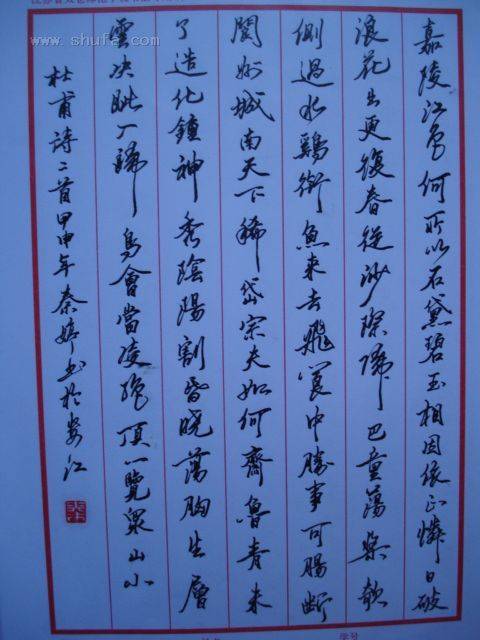 www.shufa.com
嘉陵江色何所以石黛碧玉相因依正憐日破
浪花出更復春從沙際歸巴童蕩槳欹
側過水鷄銜魚來去飛閬中勝事可腸斷
閬州城南天下稀岱宗夫如何齊魯青未
了造化鍾神秀陰陽割昏曉蕩胸生層
雲决眦入歸鳥會當凌絕頂一覽衆山小
杜甫詩二首甲申年秦婷书於婁江
学号